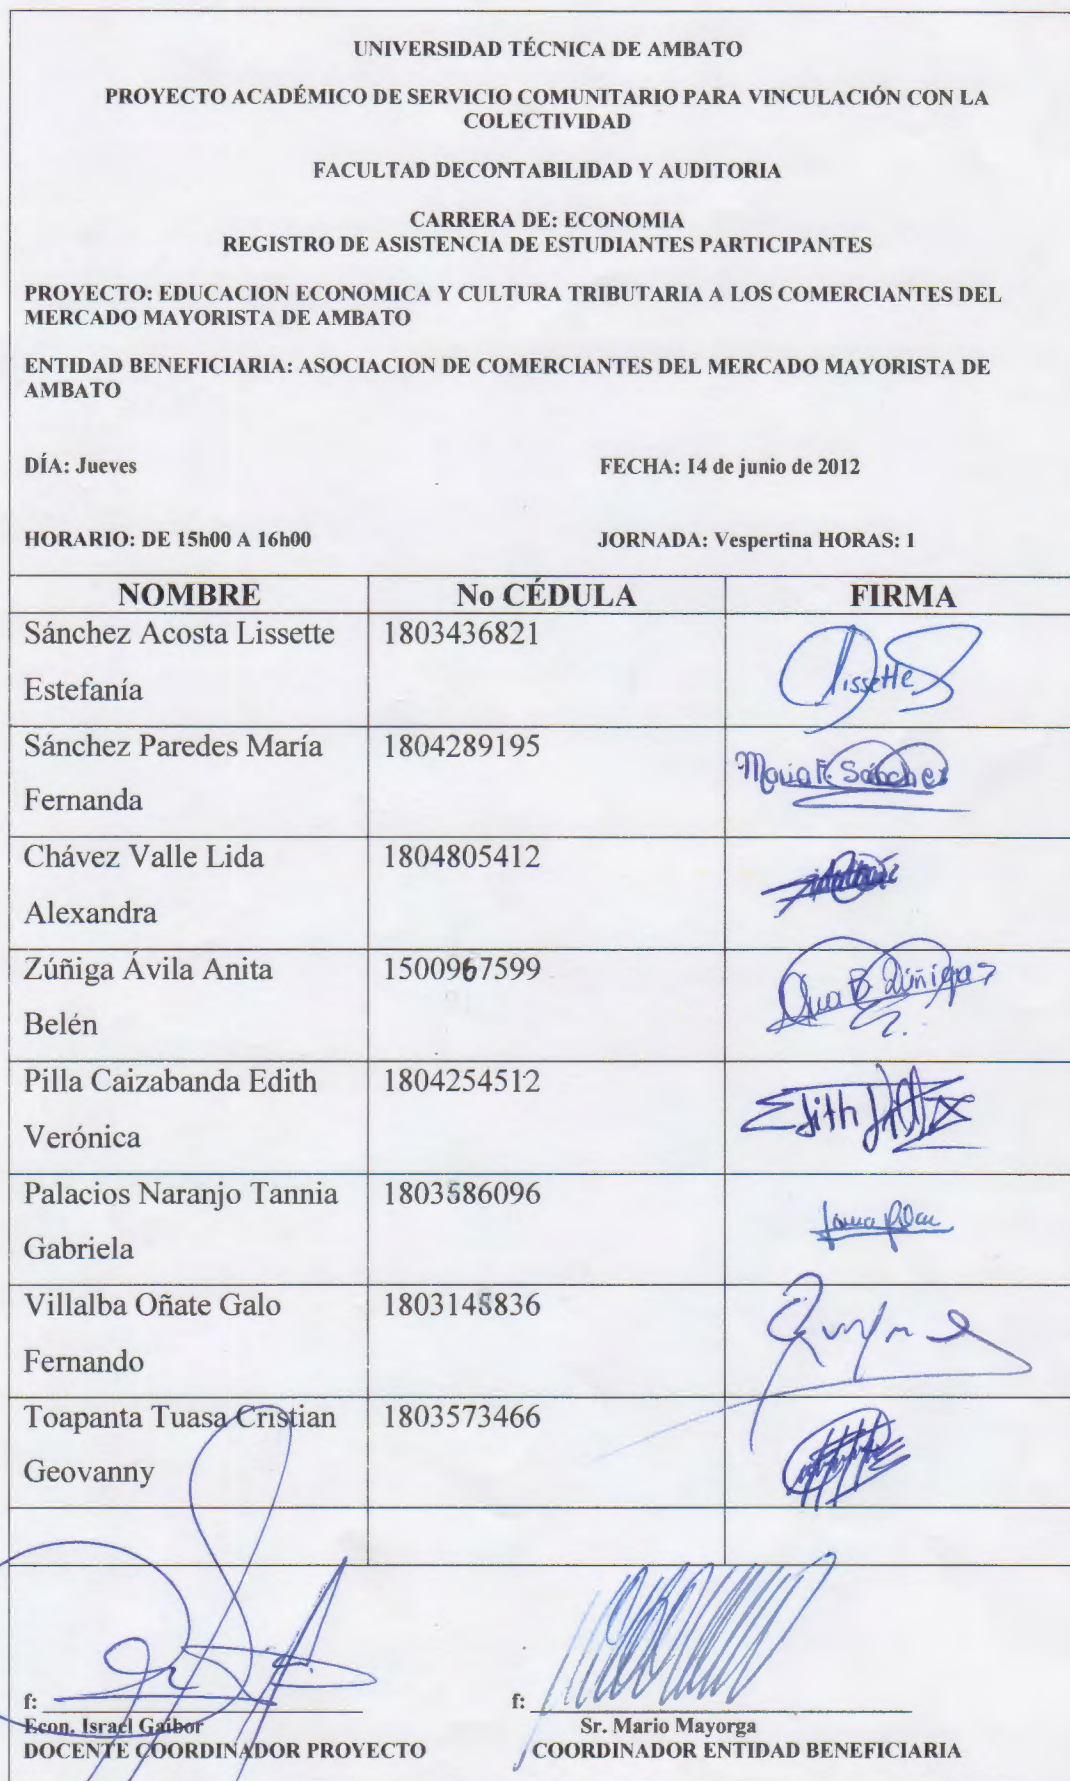 UNIVERSIDAD TÉCNICA DE AMBATO
PROYECTO ACADÉMICO DE SERVICIO COMUNITARIO PARA VINCULACIÓN CON LA
COLECTIVIDAD
FACULTAD DECONTABILIDAD Y AUDITORIA
CARRERA DE: ECONOMIA
REGISTRO DE ASISTENCIA DE ESTUDIANTES PARTICIPANTES
PROYECTO: EDUCACION ECONOMICA Y CULTURA TRIBUTARIA A LOS COMERCIANTES DEL
MERCADO MAYORISTA DE AMBATO
ENTIDAD BENEFICIARIA: ASOCIACION DE COMERCIANTES DEL MERCADO MAYORISTA DE
AMBATO
DÍA: Jueves FECHA: 14 de junio de 2012
HORARIO: DE 15h00 A 16h00 JORNADA: Vespertina HORAS: 1
NOMBRE No CÉDULA FIRMA
Sánchez Acosta Lissette 1803436821
Estefanía Lissette S
Sánchez Paredes María 1804289195 Maria F. Sánchez
Fernanda
Chávez Valle Lida 1804805412
Alexandra
Zúñiga Ávila Anita 1500967599 Ana B. Zúñiga
Belén
Pilla Caizabanda Edith 1804254512 Edith
Verónica
Palacios Naranjo Tannia 1803586096
Gabriela
Villalba Oñate Galo 1803148836
Fernando
Toapanta Tuasa Cristian 1803573466
Geovanny
f: f:
Econ. Israel Gaibor Sr. Mario Mayorga
DOCENTE COORDINADOR PROYECTO COORDINADOR ENTIDAD BENEFICIARIA